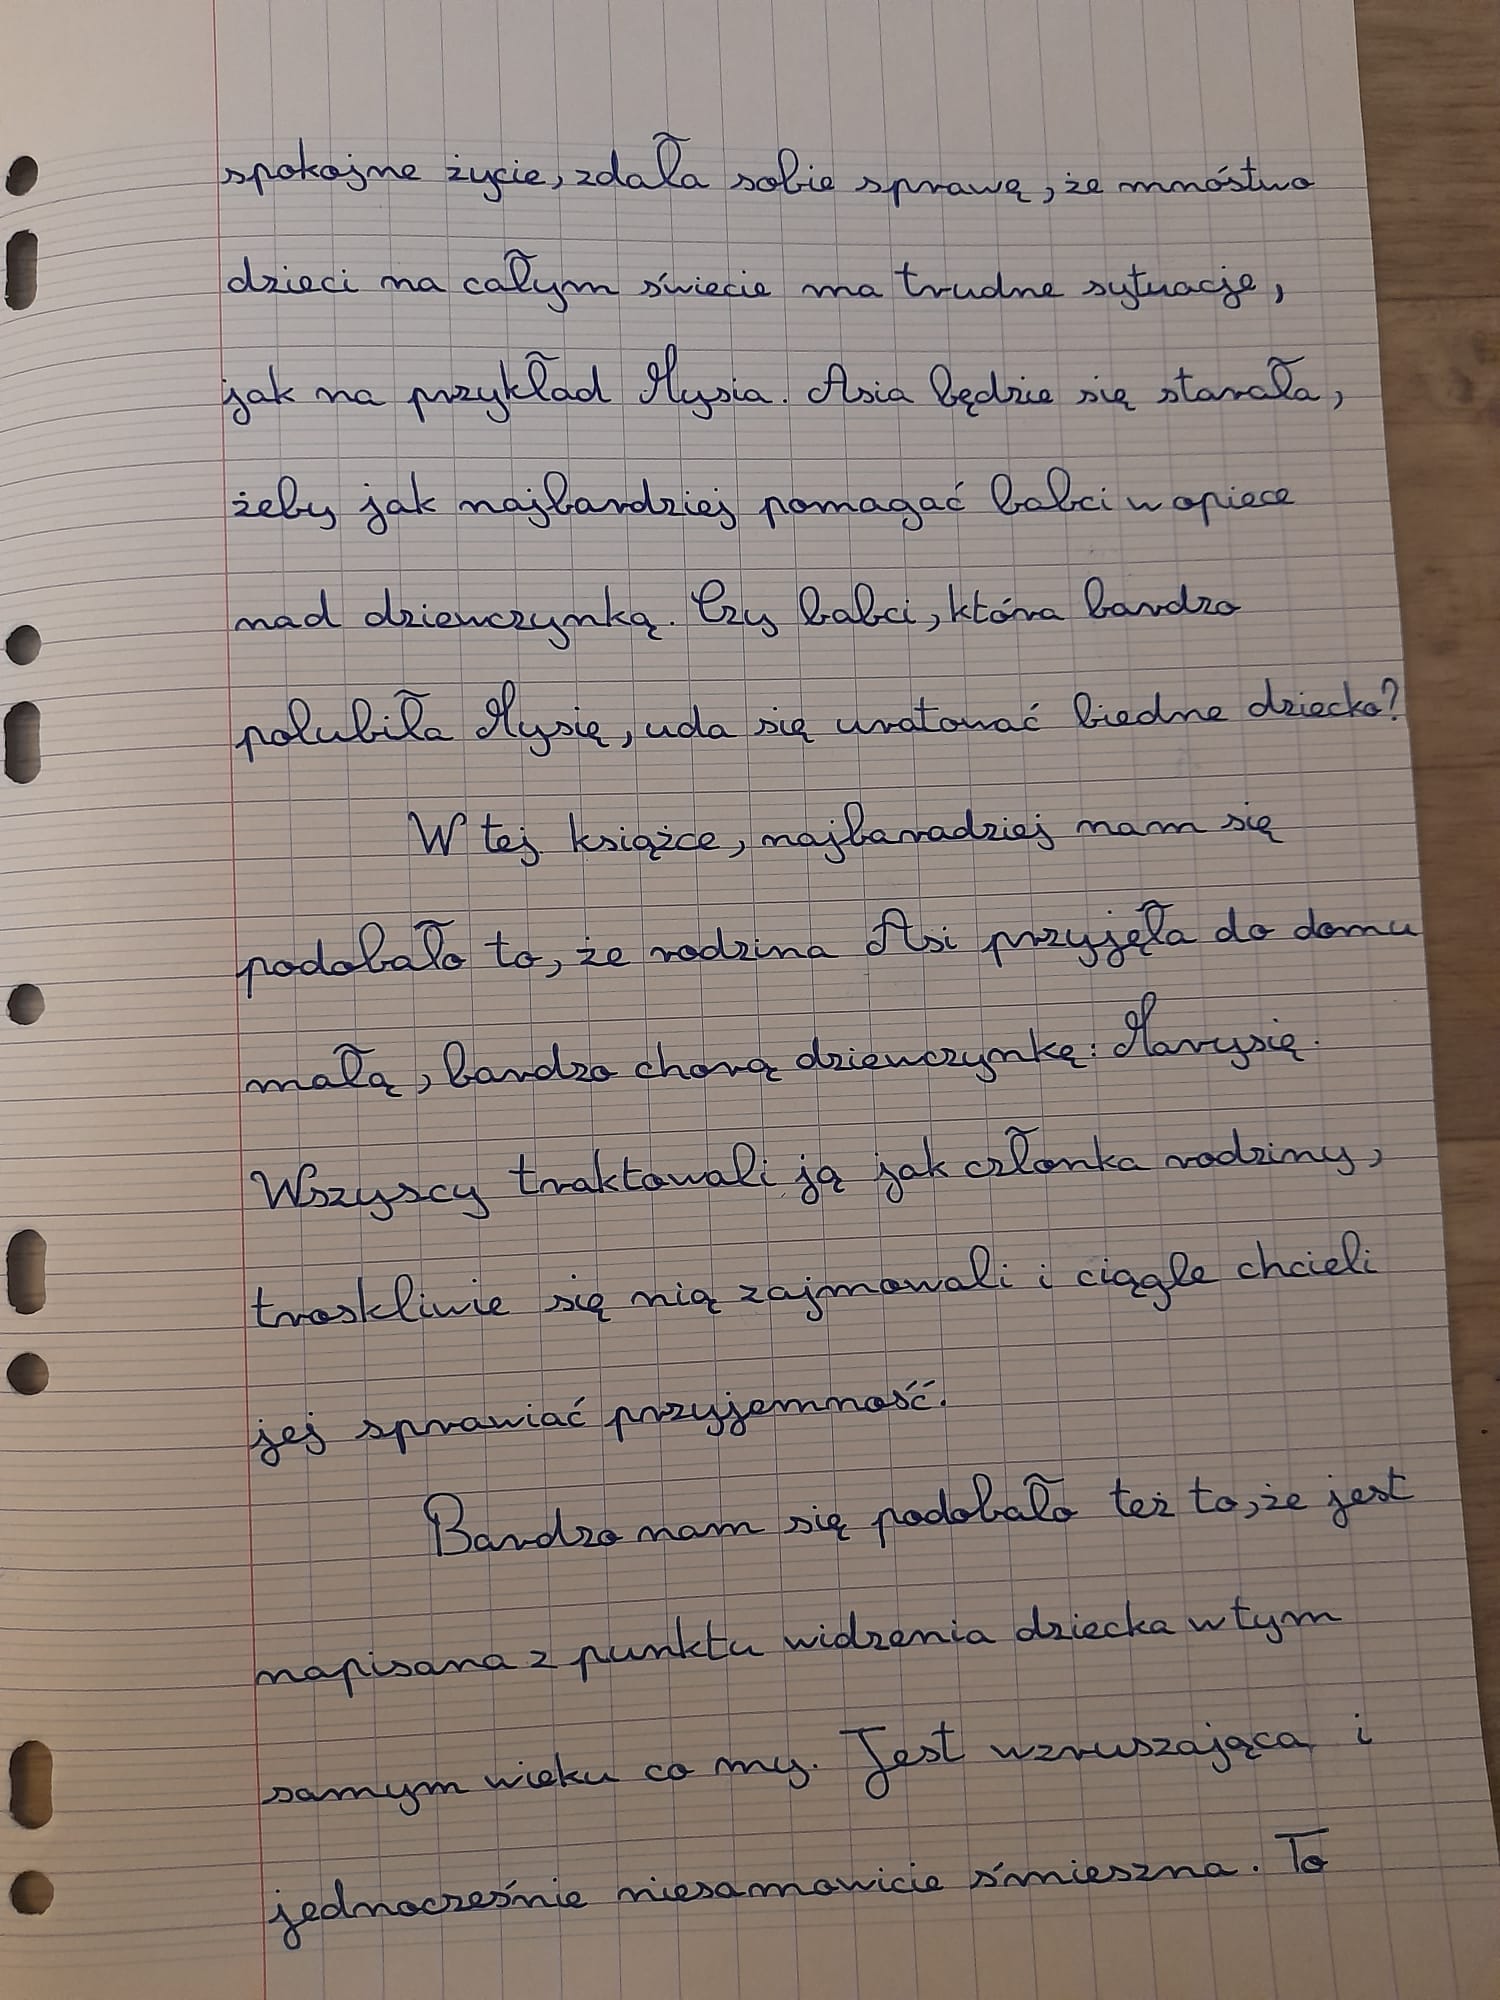 spokojne życie, zdała sobie sprawę, że mnóstwo
dzieci na całym świecie ma trudne sytuacje,
jak na przykład Mysia. Asia będzie się starała,
żeby jak najbardziej pomagać babci w opiece
nad dziewczynką. Czy babci, która bardzo
polubiła Mysię, uda się uratować biedne dziecko?
W tej książce, najbaradziej nam się
podobało to, że rodzina Asi przyjęła do domu
małą, bardzo chorą dziewczynkę: Marysię.
Wszyscy traktowali ją jak członka rodziny,
troskliwie się nią zajmowali i ciągle chcieli
jej sprawiać przyjemność.
Bardzo nam się podobało też to, że jest
napisana z punktu widzenia dziecka w tym
samym wieku co my. Jest wzruszająca i
jednocześnie niesamowicie śmieszna. To